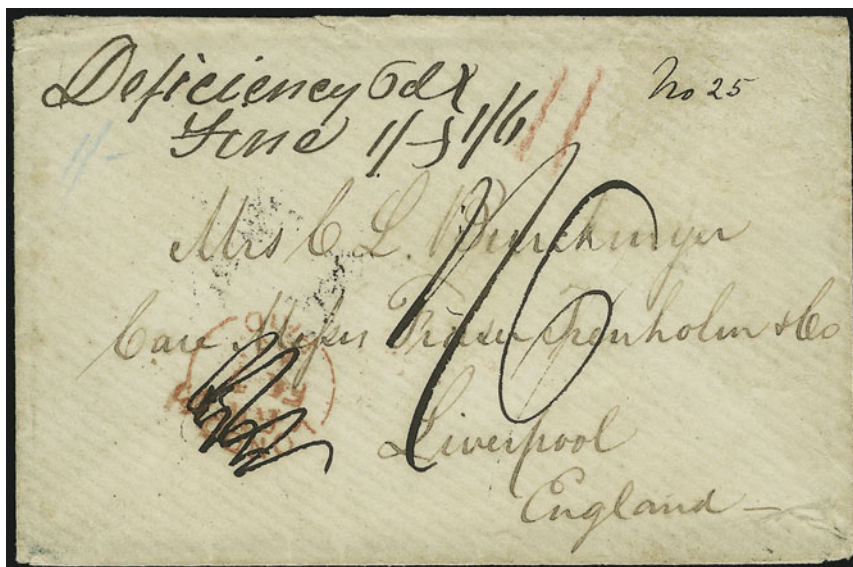 Deficiency 6d
Fine 1/- } 1/6
No 25
1/-
1/6
Mrs C L. Burckmyer
Care Messrs Fraser Trenholm & Co
Liverpool
England